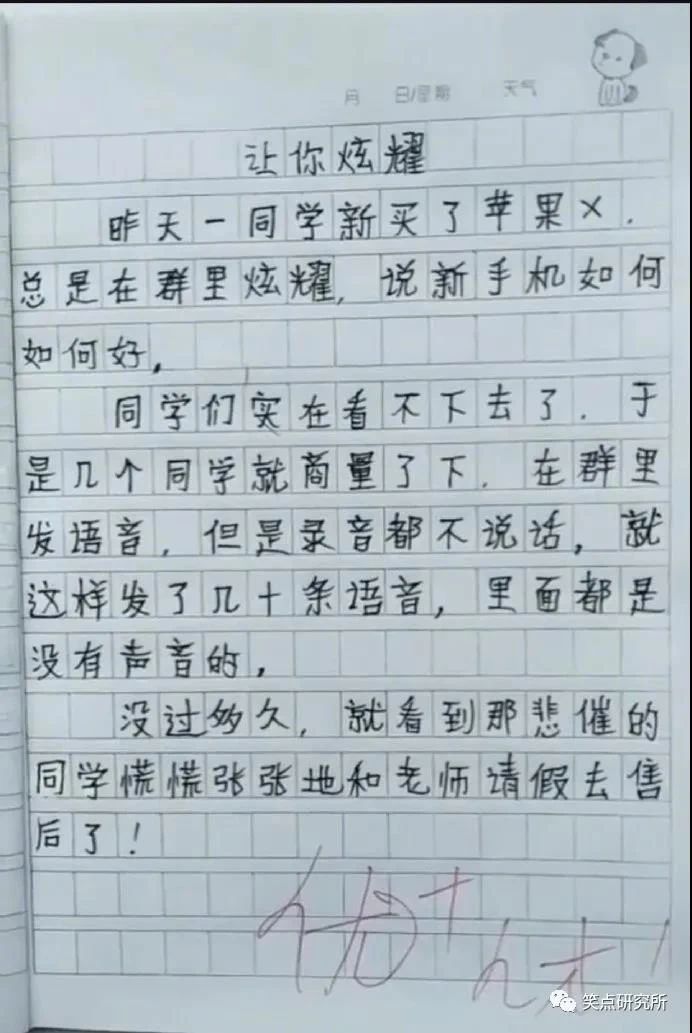 月 日/星期 天气
让你炫耀
昨天一同学新买了苹果X.
总是在群里炫耀,说新手机如何
如何好,
同学们实在看不下去了.于
是几个同学就商量了下.在群里
发语音,但是录音都不说话,就
这样发了几十条语音,里面都是
没有声音的,
没过多久,就看到那悲催的
同学慌慌张张地和老师请假去售
后了!
优+
人才!
笑点研究所